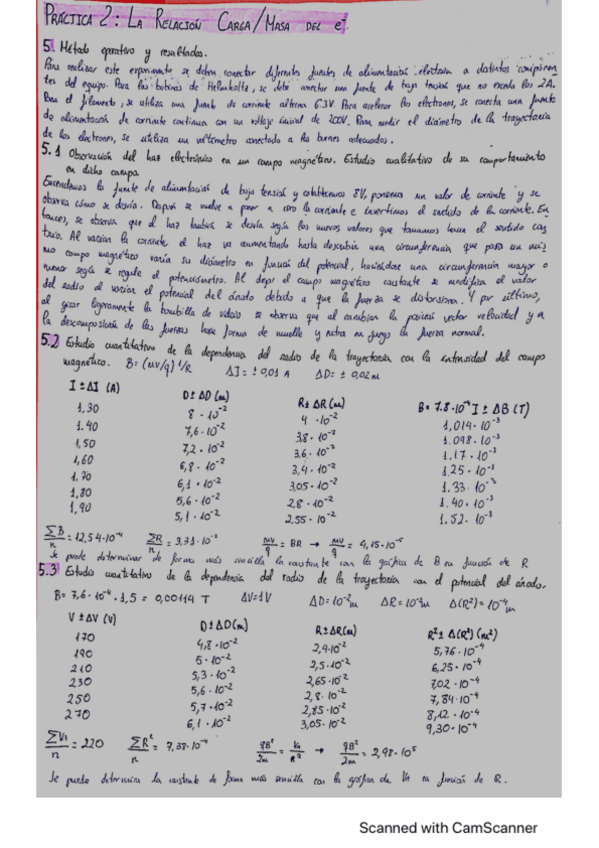 PRÁCTICA 2: LA RELACIÓN CARGA/MASA DEL e-.
5. Método operativo y resultados.
Para realizar este experimento se deben conectar diferentes fuentes de alimentación eléctrica a distintos componen-
tes del equipo. Para las bobinas de Helmholtz, se debe conectar una fuente de baja tensión que no exceda los 2A.
Para el filamento, se utiliza una fuente de corriente alterna 6.3V Para acelerar los electrones, se conecta una fuente
de alimentación de corriente continua con un voltaje inicial de 200V. Para medir el diámetro de la trayectoria
de los electrones, se utiliza un voltímetro conectado a los bornes adecuados.
5.1 Observación del haz electrónico en un campo magnético. Estudio cualitativo de su comportamiento
en dicho campo
Encendemos la fuente de alimentación de baja tensión y establecemos 8V, ponemos un valor de corriente y se
observa cómo se desvía. Después se vuelve a poner a cero la corriente e invertimos el sentido de la corriente. En
tonces, se observa que el haz también se desvía según los nuevos valores que tomamos hacia el sentido con
trario. Al variar la corriente el haz va aumentando hasta describir una circunferencia que para un mis
mo campo magnético varía su diámetro en función del potencial, haciéndose una circunferencia mayor o
menor según se regule el potenciómetro. Al dejar el campo magnético constante se modifica el valor
del radio al variar el potencial del ánodo debido a que la fuerza se distorsiona. Y por último,
al girar ligeramente la bombilla de vidrio se observa que al cambiar la posición vector velocidad y a
la descomposición de las fuerzas hace forma de muelle y entra en juego la fuerza normal.
5.2 Estudio cuantitativo de la dependencia del radio de la trayectoria con la intensidad del campo
magnético. B=(mv/q) 1/R ΔI = ± 0,01 A ΔD= ± 0,02 m
I ± ΔI (A) D ± ΔD (m) R ± ΔR (m) B = 7.8·10⁻⁴ I ± ΔB (T)
1,30 8·10⁻² 4·10⁻² 1,014·10⁻³
1.40 7,6·10⁻² 3,8·10⁻² 1.098·10⁻³
1,50 7,2·10⁻² 3.6·10⁻² 1.17·10⁻³
1,60 6,8·10⁻² 3,4·10⁻² 1,25·10⁻³
1.70 6,1·10⁻² 3,05·10⁻² 1.33·10⁻³
1.80 5,6·10⁻² 2,8·10⁻² 1.40·10⁻³
1,90 5,1·10⁻² 2,55·10⁻² 1.52·10⁻³
ΣB/n = 12,54·10⁻⁴ ΣR/n = 3,31·10⁻² mv/q = BR → mv/q = 4,15·10⁻⁵
Se puede determinar de forma más sencilla la constante con la gráfica de B en función de R
5.3 Estudio cuantitativo de la dependencia del radio de la trayectoria con el potencial del ánodo.
B= 7,6·10⁻⁴·1,5 = 0,00114 T ΔV=1V ΔD=10⁻²m ΔR=10⁻²m Δ(R²)=10⁻⁴m
V ± ΔV (V) D ± ΔD (m) R ± ΔR (m) R² ± Δ(R²) (m²)
170 4,8·10⁻² 2,4·10⁻² 5,76·10⁻⁴
190 5·10⁻² 2,5·10⁻² 6,25·10⁻⁴
210 5,3·10⁻² 2,65·10⁻² 7,02·10⁻⁴
230 5,6·10⁻² 2,8·10⁻² 7,84·10⁻⁴
250 5,7·10⁻² 2,85·10⁻² 8,12·10⁻⁴
270 6,1·10⁻² 3,05·10⁻² 9,30·10⁻⁴
ΣVₐ/n = 220 ΣR²/n = 7,38·10⁻⁴ qB²/2m = Vₐ/R² → qB²/2m = 2,98·10⁵
Se puede determinar la constante de forma más sencilla con la gráfica de Vₐ en función de R.
Scanned with CamScanner